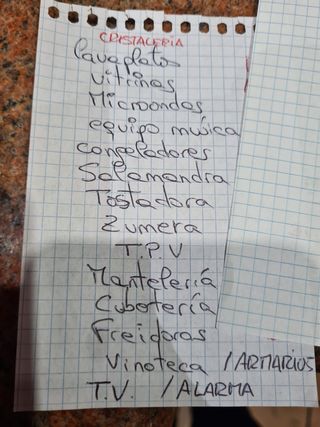 CRISTALERIA
lavaplatos
vitrinas
Microondas
equipo música
congeladores
Salamandra
Tostadora
Zumera
T.P.V
Mantelería
Cubetería
Freidoras
Vinoteca / ARMARIOS
T.V. / ALARMA